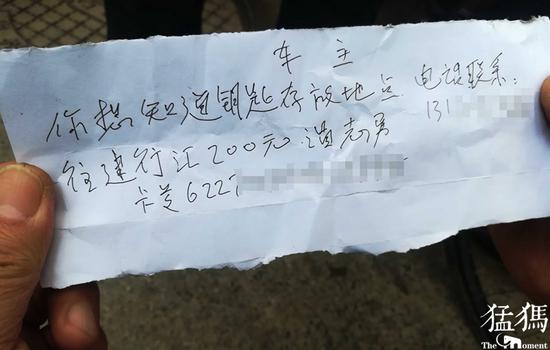 车主
你想知道钥匙存放地点 电话联系:
131
往建行汇200元 志勇
卡号6227
猛犸
The Moment